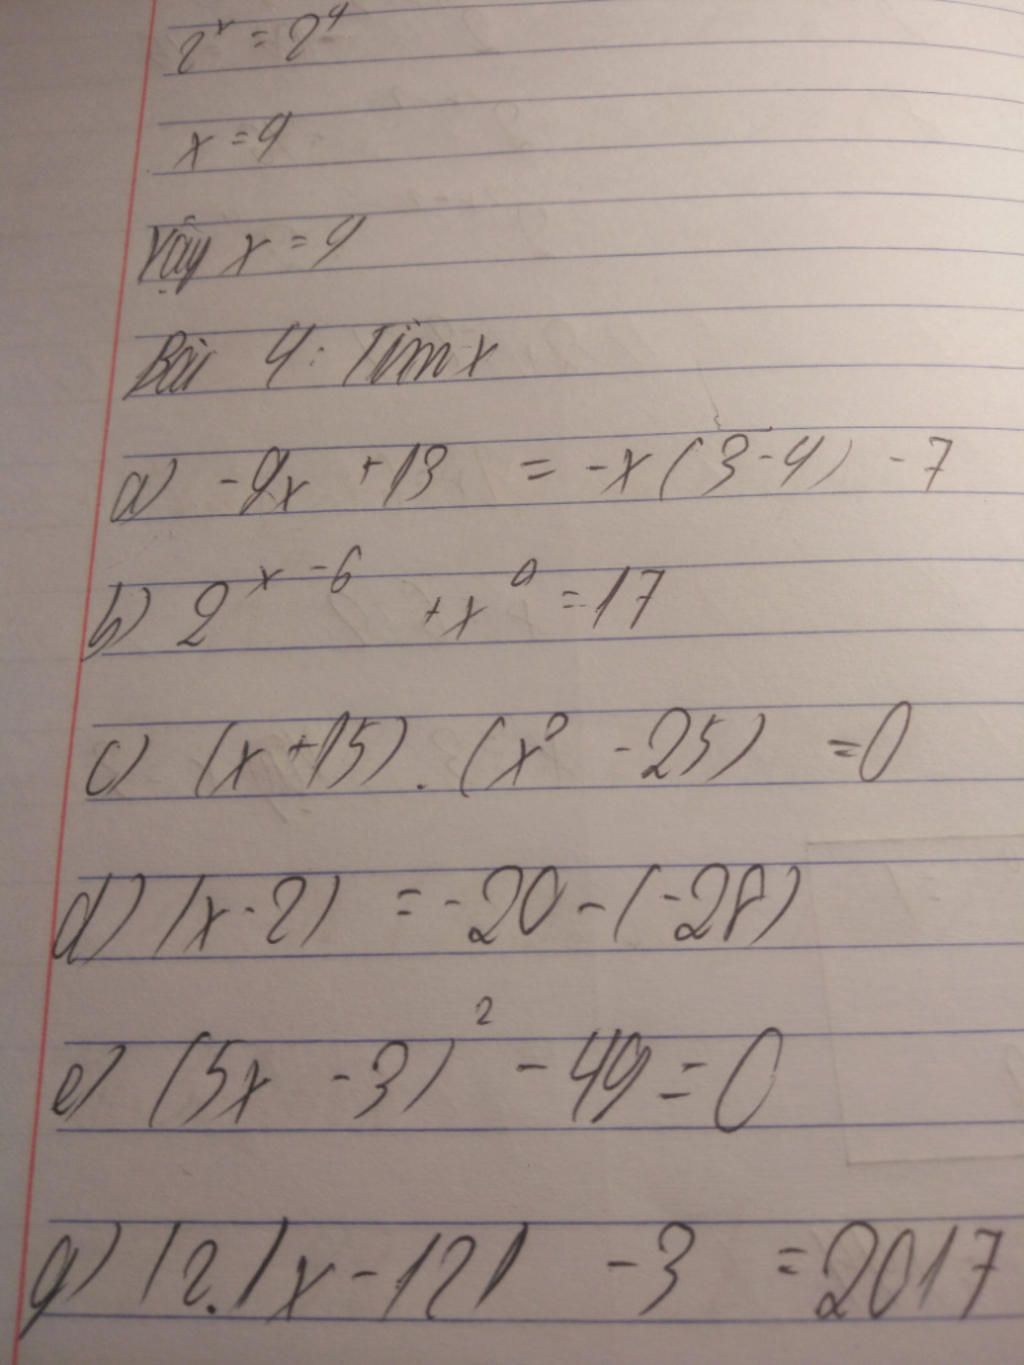 2^x = 2^4
x = 4
Vậy x = 4
Bài 4: Tìm x
a) -2x +13 = -x(3-4) -7
b) 2^{x-6} +x^0 = 17
c) (x+15).(x^2 -25) =0
d) (x-2) = -20-(-28)
e) (5x -3)^2 - 49=0
g) |2.|x-12| -3 =2017